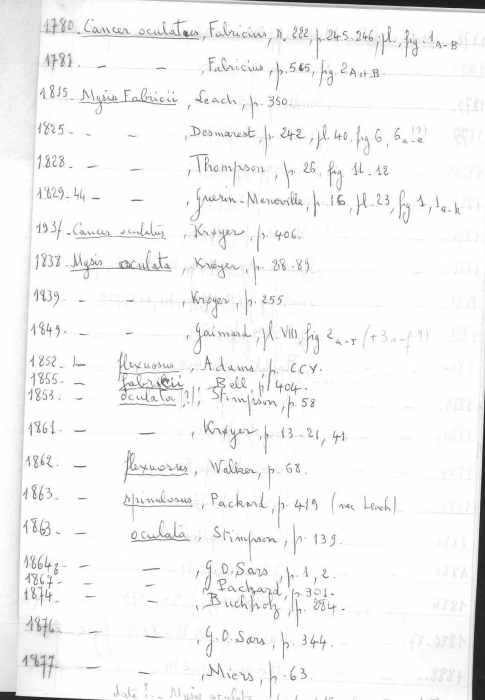 1780. Cancer oculatus, Fabricius, n. 222, p. 245-246, pl., fig. 1 A-B
1781. - - , Fabricius, p. 565, fig. 2 A et B.
1815. Mysis Fabricii, Leach, p. 350.
1825. - - , Desmarest, p. 242, pl. 40, fig 6, 6a-e (?)
1828. - - , Thompson, p. 26, fig 11-12
1829-44 - - , Guerin-Meneville, p. 16, pl. 23, fig 1, 1a-k
1937. Cancer oculatus, Krøyer, p. 406.
1838. Mysis oculata, Krøyer, p. 88-89
1839 - - , Krøyer, p. 255.
1849. - - , Gaimard, pl. VIII, fig 2a-r (+ 3a-f ?)
1852. - flexuosus, Adams, p. CCV.
1855. - fabricii, Bell, p. 404.
1853. - oculata (?), Stimpson, p. 58
1861 - - , Krøyer, p. 13-21, 41.
1862. - flexuosus, Walker, p. 68.
1863. - spinulosus, Packard, p. 419 (nec Leach)
1863. - oculata, Stimpson, p. 139.
1864. - - , G.O. Sars, p. 1, 2.
1867. - - , Packard, p. 301.
1874. - - , Buchholz, p. 284.
1876. - - , G.O. Sars, p. 344.
1877 - - , Miers, p. 63.
date ? - Mysis oculata